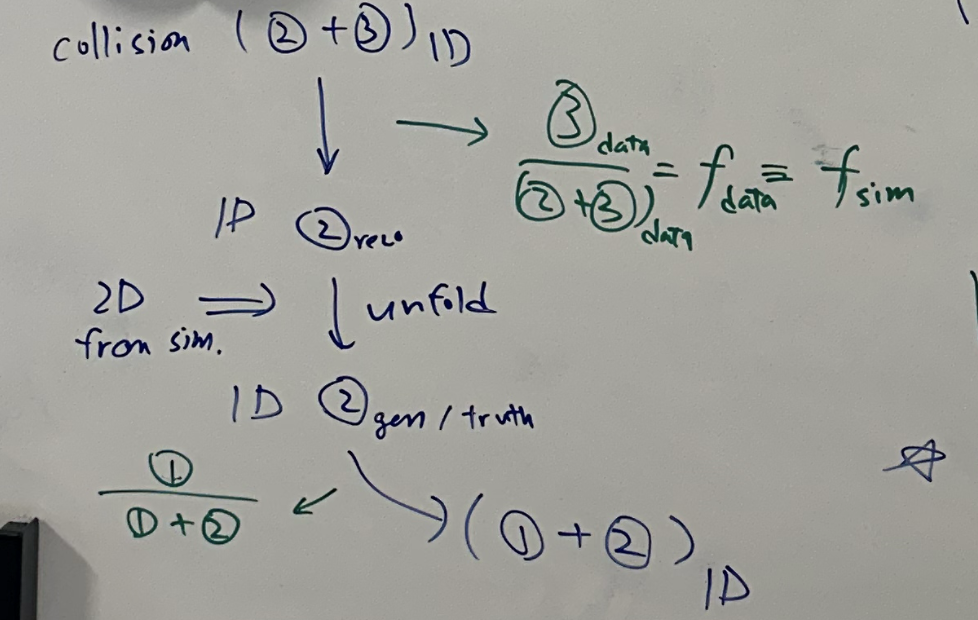 collision (②+③)1D
→ ③data / (②+③)data = fdata ≡ fsim
1D ②reco
2D ⇒ ↓ unfold
from sim.
1D ②gen/truth
① / ①+② ↙
(①+②)1D